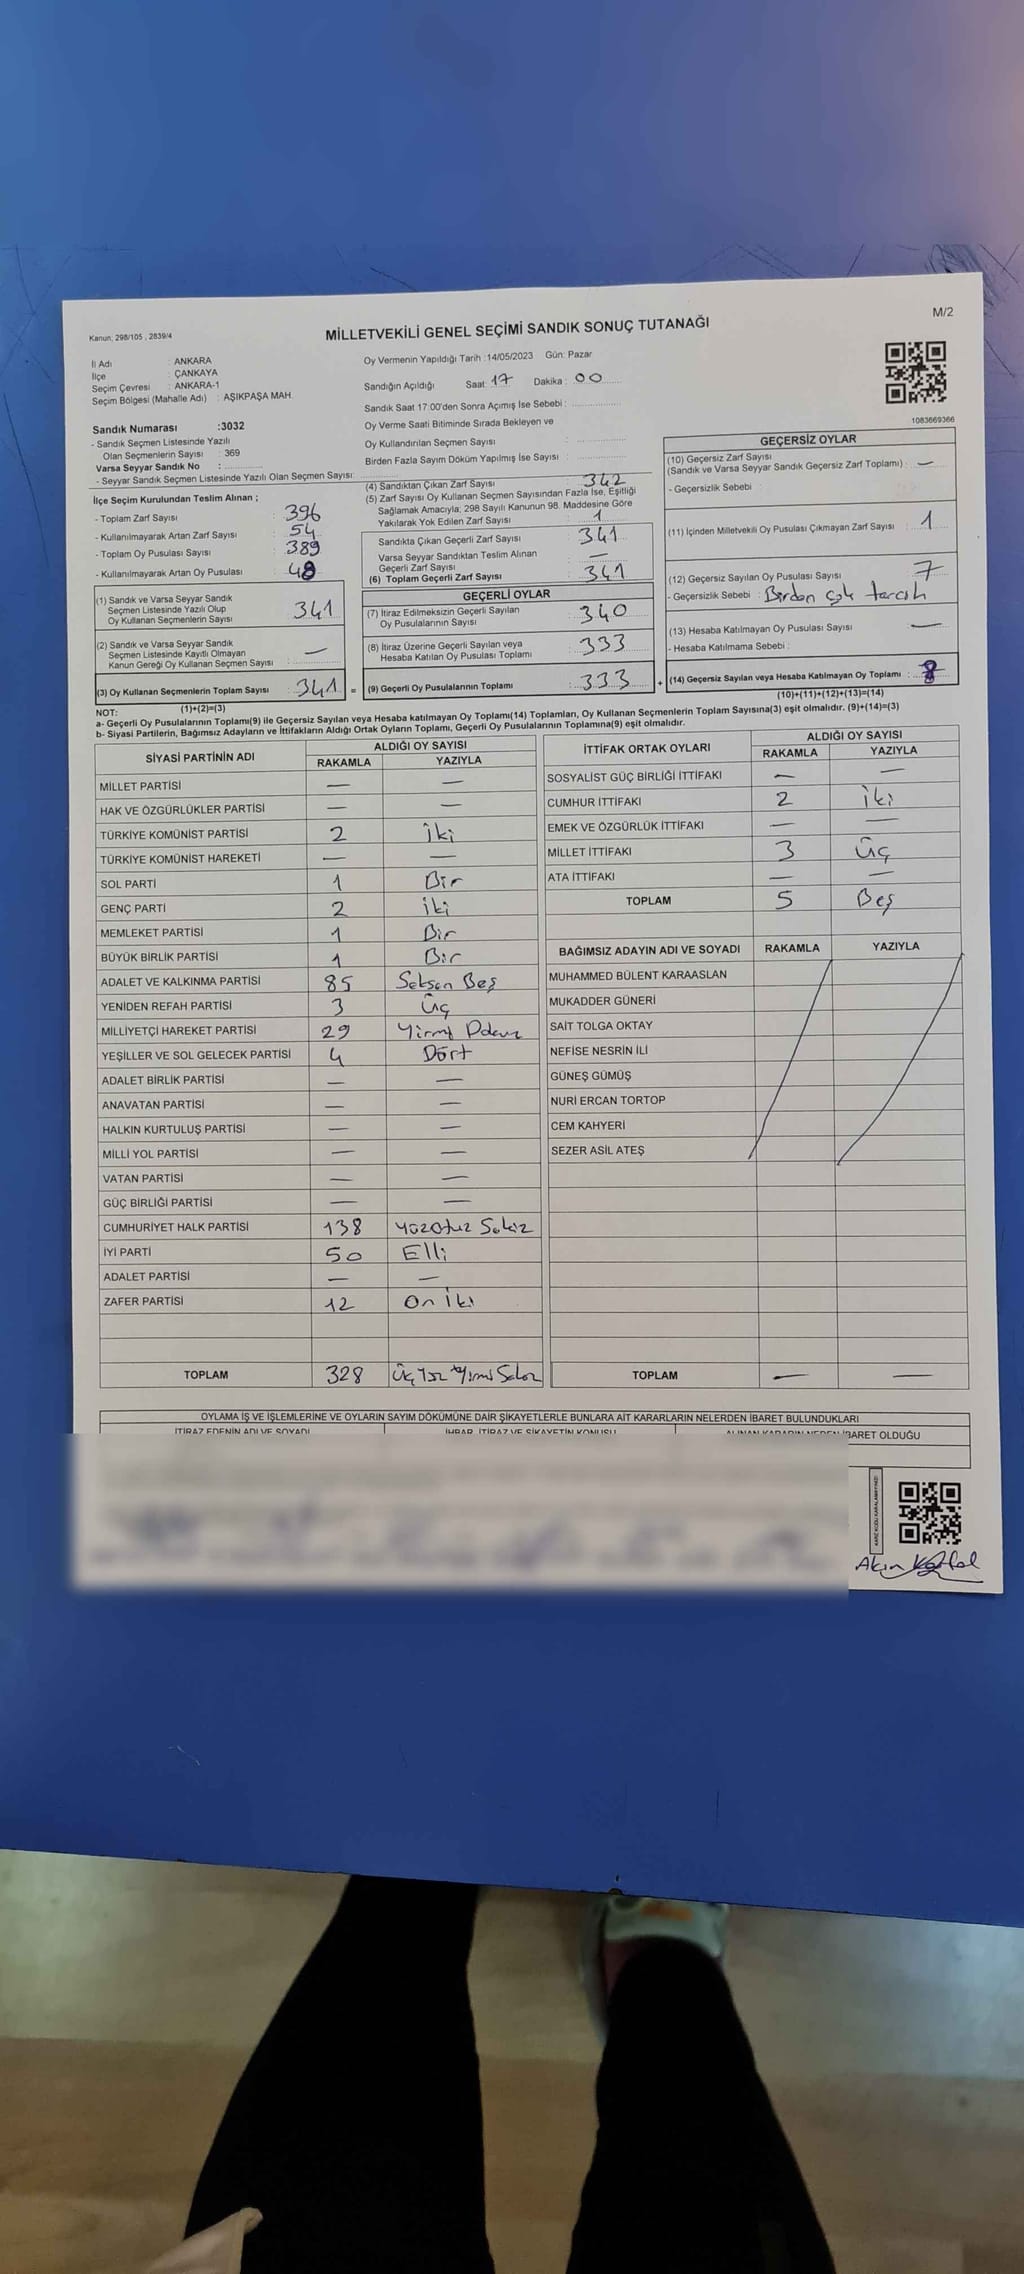 Kanun: 298/105 , 2839/4
MİLLETVEKİLİ GENEL SEÇİMİ SANDIK SONUÇ TUTANAĞI
M/2
İl Adı : ANKARA
İlçe : ÇANKAYA
Seçim Çevresi : ANKARA-1
Seçim Bölgesi (Mahalle Adı) : AŞIKPAŞA MAH.
Oy Vermenin Yapıldığı Tarih :14/05/2023 Gün: Pazar
Sandığın Açıldığı Saat: 17 Dakika : 00
Sandık Saat 17:00'den Sonra Açımış İse Sebebi :
Oy Verme Saati Bitiminde Sırada Bekleyen ve
Oy Kullandırılan Seçmen Sayısı :
Birden Fazla Sayım Döküm Yapılmış İse Sayısı :
1083669366
Sandık Numarası :3032
- Sandık Seçmen Listesinde Yazılı
Olan Seçmenlerin Sayısı : 369
Varsa Seyyar Sandık No :
- Seyyar Sandık Seçmen Listesinde Yazılı Olan Seçmen Sayısı:
İlçe Seçim Kurulundan Teslim Alınan ;
- Toplam Zarf Sayısı : 396
- Kullanılmayarak Artan Zarf Sayısı : 54
- Toplam Oy Pusulası Sayısı : 389
- Kullanılmayarak Artan Oy Pusulası : 48
(1) Sandık ve Varsa Seyyar Sandık
Seçmen Listesinde Yazılı Olup
Oy Kullanan Seçmenlerin Sayısı : 341
(2) Sandık ve Varsa Seyyar Sandık
Seçmen Listesinde Kayıtlı Olmayan
Kanun Gereği Oy Kullanan Seçmen Sayısı : —
(3) Oy Kullanan Seçmenlerin Toplam Sayısı : 341
(1)+(2)=(3)
(4) Sandıktan Çıkan Zarf Sayısı : 342
(5) Zarf Sayısı Oy Kullanan Seçmen Sayısından Fazla İse, Eşitliği
Sağlamak Amacıyla, 298 Sayılı Kanunun 98. Maddesine Göre
Yakılarak Yok Edilen Zarf Sayısı : 1
Sandıkta Çıkan Geçerli Zarf Sayısı : 341
Varsa Seyyar Sandıktan Teslim Alınan
Geçerli Zarf Sayısı : —
(6) Toplam Geçerli Zarf Sayısı : 341
GEÇERLİ OYLAR
(7) İtiraz Edilmeksizin Geçerli Sayılan
Oy Pusulalarının Sayısı : 340
(8) İtiraz Üzerine Geçerli Sayılan veya
Hesaba Katılan Oy Pusulası Toplamı : 333
= (9) Geçerli Oy Pusulalarının Toplamı : 333 +
GEÇERSİZ OYLAR
(10) Geçersiz Zarf Sayısı
(Sandık ve Varsa Seyyar Sandık Geçersiz Zarf Toplamı) : —
- Geçersizlik Sebebi :
(11) İçinden Milletvekili Oy Pusulası Çıkmayan Zarf Sayısı : 1
(12) Geçersiz Sayılan Oy Pusulası Sayısı : 7
- Geçersizlik Sebebi : Birden çok tercih
(13) Hesaba Katılmayan Oy Pusulası Sayısı : —
- Hesaba Katılmama Sebebi :
(14) Geçersiz Sayılan veya Hesaba Katılmayan Oy Toplamı : 8
(10)+(11)+(12)+(13)=(14)
NOT:
a- Geçerli Oy Pusulalarının Toplamı(9) ile Geçersiz Sayılan veya Hesaba katılmayan Oy Toplamı(14) Toplamları, Oy Kullanan Seçmenlerin Toplam Sayısına(3) eşit olmalıdır. (9)+(14)=(3)
b- Siyasi Partilerin, Bağımsız Adayların ve İttifakların Aldığı Ortak Oyların Toplamı, Geçerli Oy Pusulalarının Toplamına(9) eşit olmalıdır.
SİYASİ PARTİNİN ADI ALDIĞI OY SAYISI
RAKAMLA YAZIYLA
MİLLET PARTİSİ — —
HAK VE ÖZGÜRLÜKLER PARTİSİ — —
TÜRKİYE KOMÜNİST PARTİSİ 2 İki
TÜRKİYE KOMÜNİST HAREKETİ — —
SOL PARTİ 1 Bir
GENÇ PARTİ 2 İki
MEMLEKET PARTİSİ 1 Bir
BÜYÜK BİRLİK PARTİSİ 1 Bir
ADALET VE KALKINMA PARTİSİ 85 Seksen Beş
YENİDEN REFAH PARTİSİ 3 Üç
MİLLİYETÇİ HAREKET PARTİSİ 29 Yirmi
YEŞİLLER VE SOL GELECEK PARTİSİ 4 Dört
ADALET BİRLİK PARTİSİ — —
ANAVATAN PARTİSİ — —
HALKIN KURTULUŞ PARTİSİ — —
MİLLİ YOL PARTİSİ — —
VATAN PARTİSİ — —
GÜÇ BİRLİĞİ PARTİSİ — —
CUMHURİYET HALK PARTİSİ 138 Yüzotuz Sekiz
İYİ PARTİ 50 Elli
ADALET PARTİSİ — —
ZAFER PARTİSİ 12 On İki
TOPLAM 328 Üç Yüz Yirmi Sekiz
İTTİFAK ORTAK OYLARI ALDIĞI OY SAYISI
RAKAMLA YAZIYLA
SOSYALİST GÜÇ BİRLİĞİ İTTİFAKI — —
CUMHUR İTTİFAKI 2 İki
EMEK VE ÖZGÜRLÜK İTTİFAKI — —
MİLLET İTTİFAKI 3 Üç
ATA İTTİFAKI — —
TOPLAM 5 Beş
BAĞIMSIZ ADAYIN ADI VE SOYADI RAKAMLA YAZIYLA
MUHAMMED BÜLENT KARAASLAN
MUKADDER GÜNERİ
SAİT TOLGA OKTAY
NEFİSE NESRİN İLİ
GÜNEŞ GÜMÜŞ
NURİ ERCAN TORTOP
CEM KAHYERİ
SEZER ASİL ATEŞ
TOPLAM — —
OYLAMA İŞ VE İŞLEMLERİNE VE OYLARIN SAYIM DÖKÜMÜNE DAİR ŞİKAYETLERLE BUNLARA AİT KARARLARIN NELERDEN İBARET BULUNDUKLARI
İTİRAZ EDENİN ADI VE SOYADI İHBAR, İTİRAZ VE ŞİKAYETİN KONUSU ALINAN KARARIN NEDEN İBARET OLDUĞU
KARE KODU KARALAMAYINIZ!
Akın